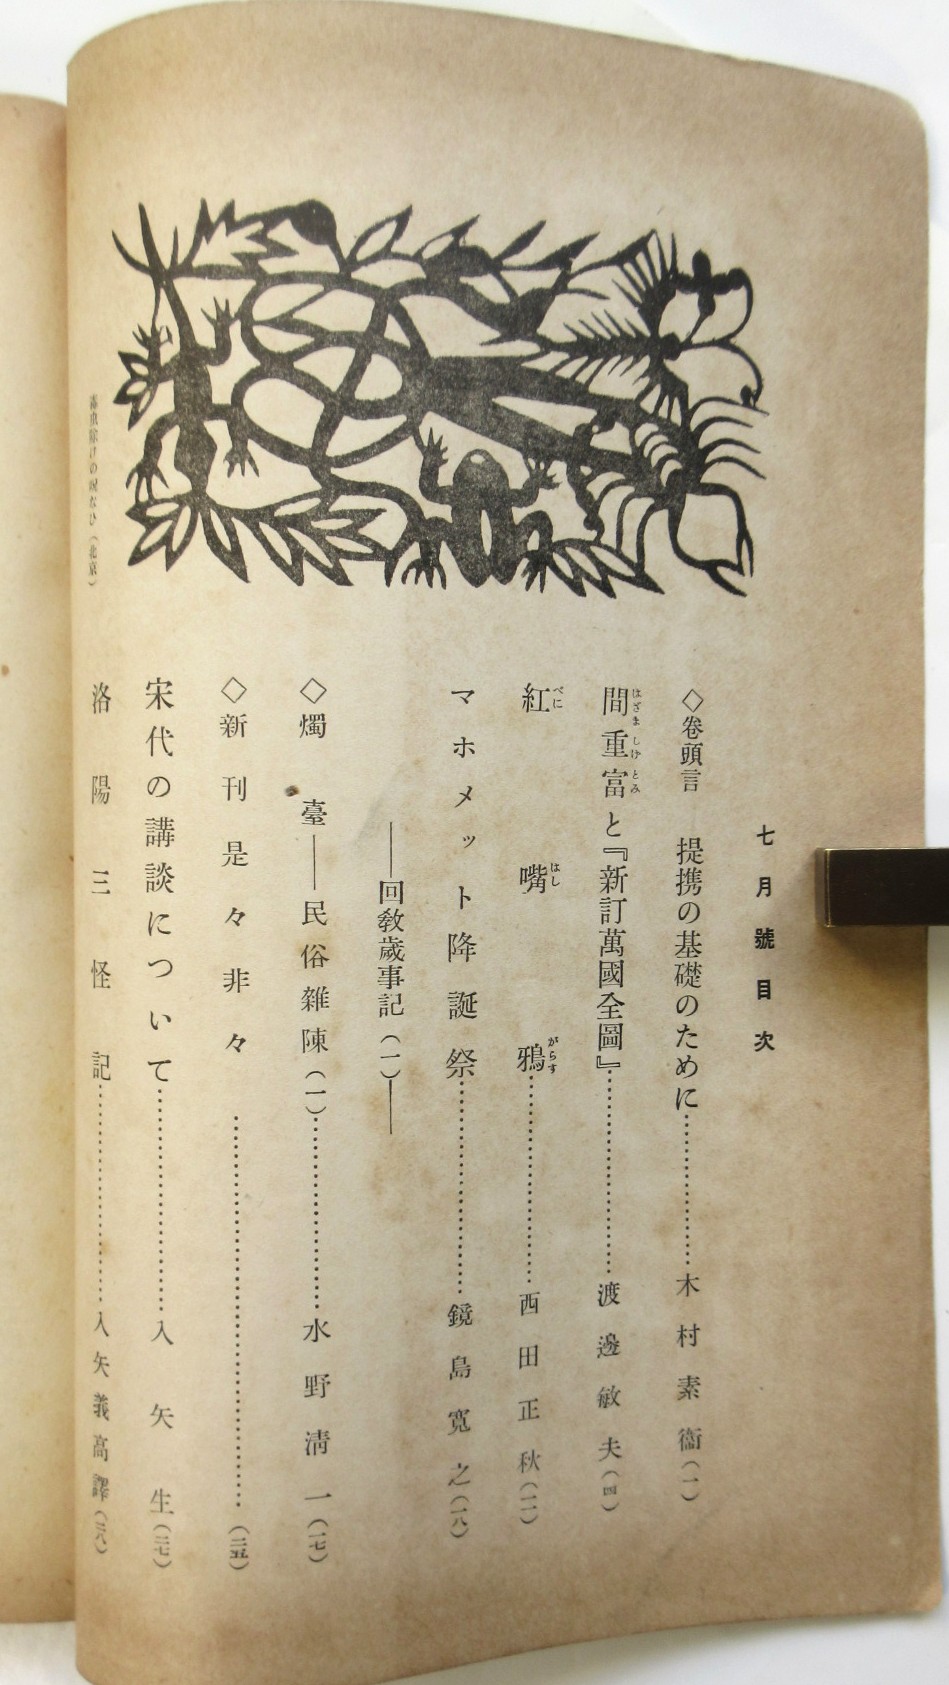 七月號目次
◇卷頭言 提携の基礎のために……………木村素衞(一)
間重富と『新訂萬國全圖』……………渡邊敏夫(四)
はざましげとみ
紅嘴鴉……………西田正秋(一一)
べにはしがらす
マホメット降誕祭……………鏡島寬之(一八)
——回敎歲事記(一)——
◇燭臺——民俗雜陳(一)……………水野淸一(一七)
◇新刊是々非々……………(三五)
宋代の講談について……………入矢生(三七)
洛陽三怪記……………入矢義高譯(三八)
毒虫除けの呪なひ(北京)